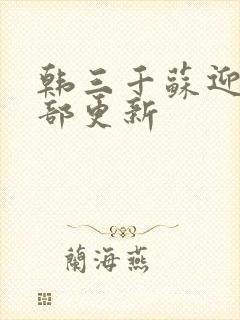 韩三千蘇迎
部更新
蘭海燕